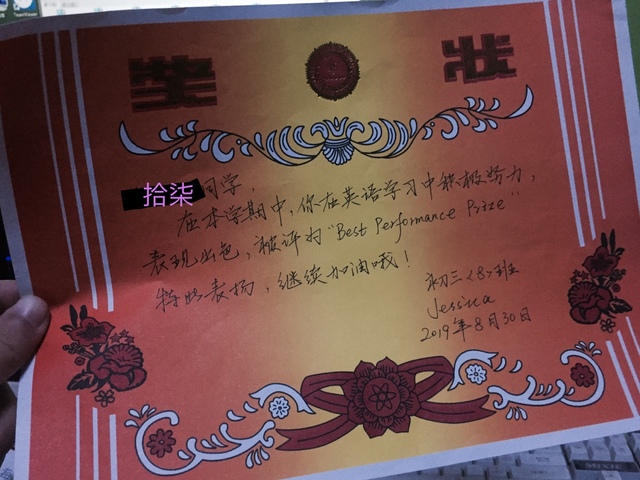 奖 状
拾柒同学，
在本学期中，你在英语学习中积极努力，
表现出色，被评为"Best Performance Prize"
特此表扬，继续加油哦！
初三〈8〉班
Jessica
2019年8月30日